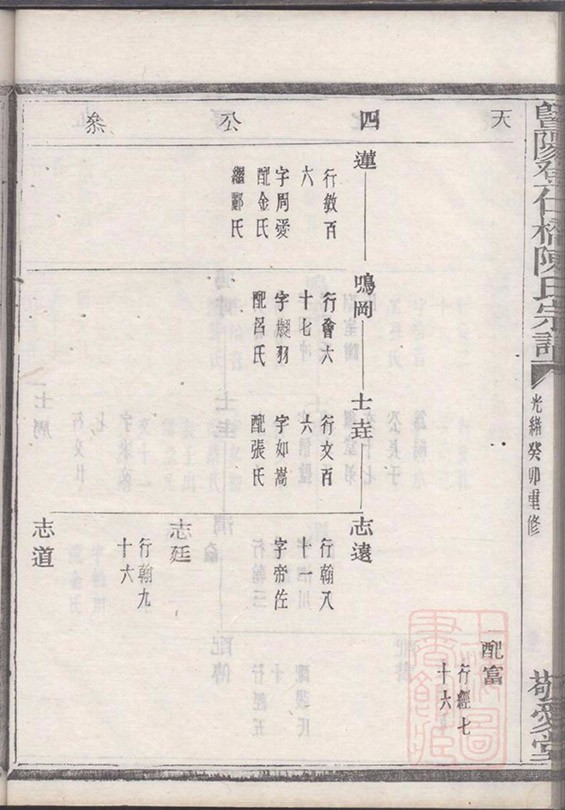 暨陽登仕橋陳氏宗譜
光緒癸卯重修
敬愛堂
天 四 公 叅
配富
行經七
十六
蓮
行敘百
六
字周愛
配金氏
繼鄭氏
鳴岡
行會六
十七
字凝羽
配呂氏
士垚
行文百
六
字如嵩
配張氏
志遠
行翰八
十一
字帝佐
志廷
行翰九
十六
志道